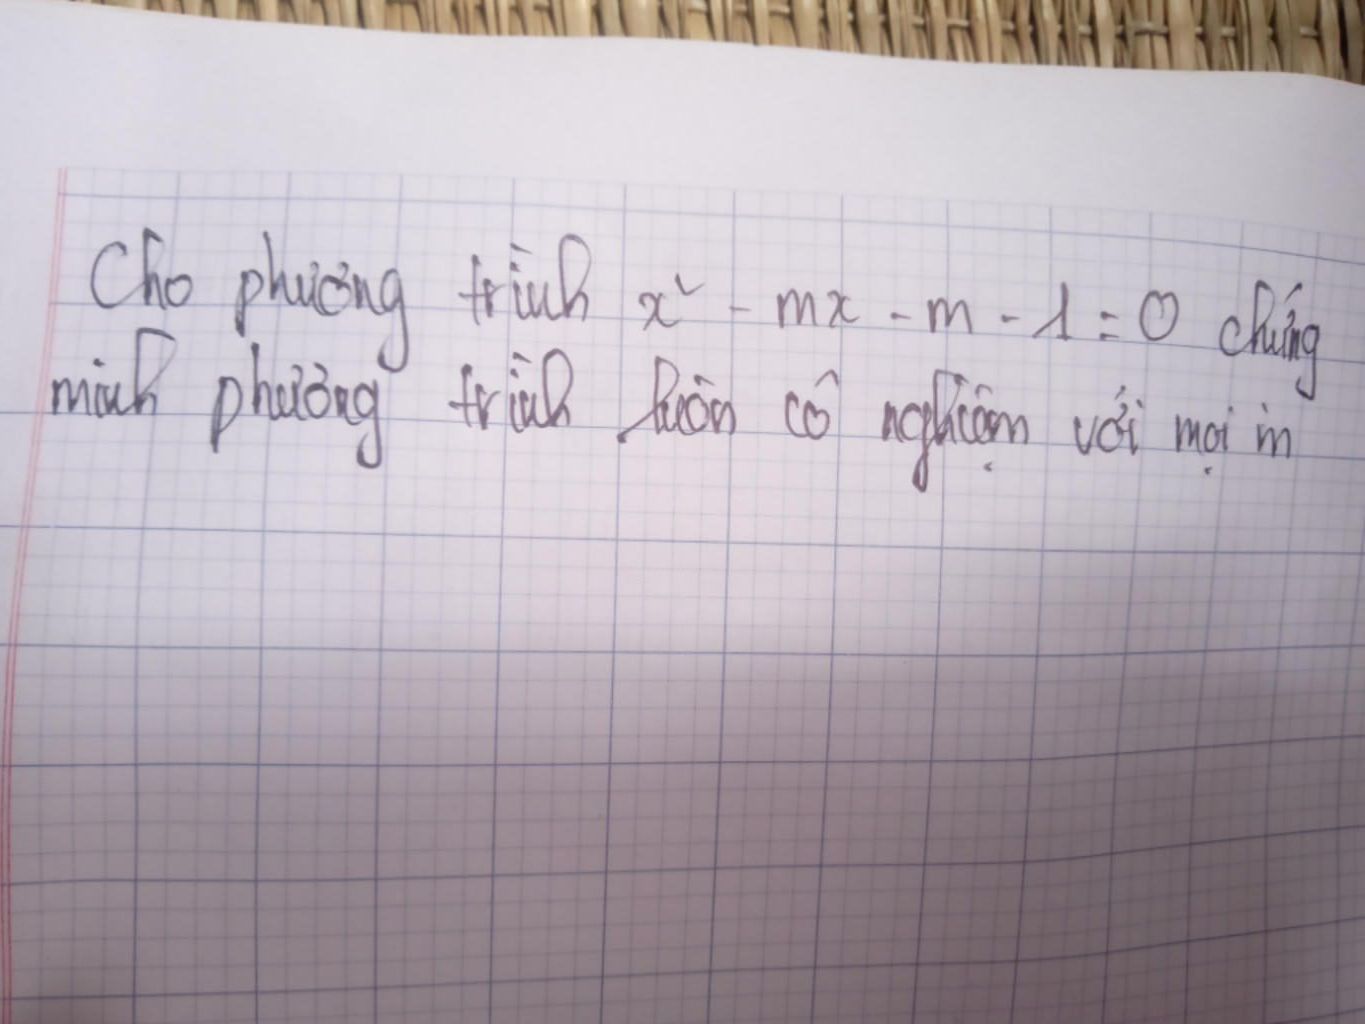 Cho phương trình x² - mx - m - 1 = 0 chứng
minh phương trình luôn có nghiệm với mọi m